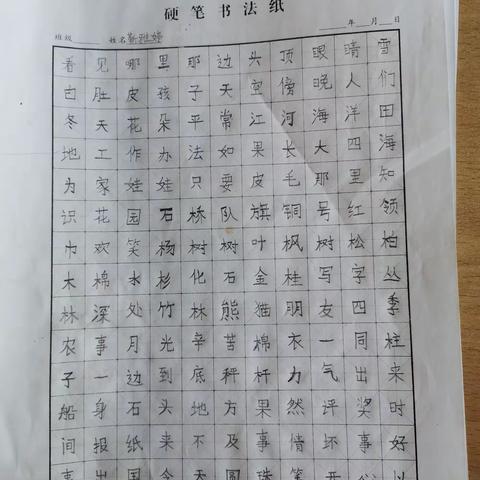 硬笔书法纸
班级 姓名 年 月 日
看见哪里那边头顶眼睛雪
白肚皮孩子天空傍晚人们
冬天花朵平常江河海洋田
地工作办法如果长大四海
为家娃娃只要皮毛那里知
识花园石桥队旗铜号红领
巾欢笑杨树树叶枫树松柏
木棉水杉化石金桂写字丛
林深处竹林熊猫朋友四季
农事月光辛苦棉衣一同柱
子一边到底秤杆力气出来
船身石头地方果然评奖时
间报纸来不及事情坏事好
事出国今天圆珠笔开 以